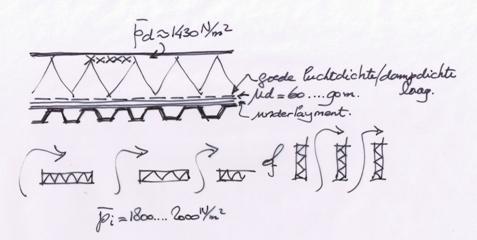 p̄d ≈ 1430 N/m²
goede luchtdichte/dampdichte
laag.
μd = 60....90m.
underlayment.
of
p̄i = 1800.... 2000 N/m²